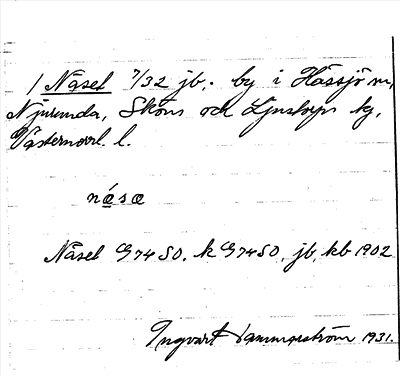 1 Näset 7/32 jb. by i Hässjö m,
Njurunda, Sköns och Ljustorps tg.
Västernorrl. l.
næ´sæ
Näset G 74 SO. k G 74 SO, jb, kb 1902
Ingvart Hammarström 1931.